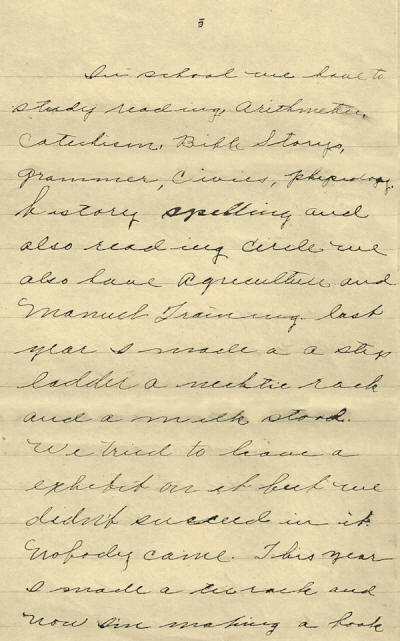 5
In school we have to
study reading, Arithmetic,
Catechism, Bible Storys,
grammer, Civics, physiology.
history spelling and
also reading circle we
also have Agriculture and
Manuel Training. last
year I made a a step
ladder a necktie rack
and a milk stool.
We tried to have a
exhibit on it but we
didn't succeed in it.
Nobody came. This year
I made a tierack and
now im making a book